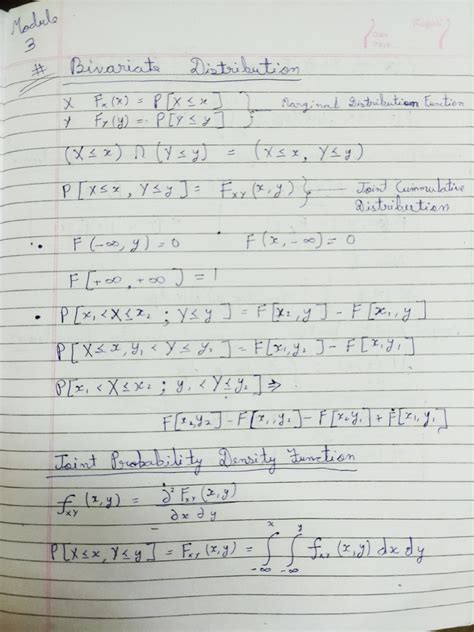 Module
3
# Bivariate Distribution
X F_X(x) = P[X ≤ x]
Y F_Y(y) = P[Y ≤ y] } Marginal Distribution Function
(X ≤ x) ∩ (Y ≤ y] = (X ≤ x, Y ≤ y)
P[X ≤ x, Y ≤ y] = F_XY(x, y) } Joint Cummulative
Distribution
• F(-∞, y) = 0 F(x, -∞) = 0
F[+∞, +∞) = 1
• P[x₁ < X ≤ x₂ ; Y ≤ y] = F[x₂, y] - F[x₁, y]
P[X ≤ x, y₁ < Y ≤ y₂] = F[x, y₂] - F[x, y₁]
P[x₁ < X ≤ x₂ ; y₁ < Y ≤ y₂] ⇒
F[x₂, y₂] - F[x₁, y₂] - F[x₂, y₁] + F[x₁, y₁]
Joint Probability Density Function
f_XY(x, y) = ∂² F_XY(x, y) / ∂x ∂y
P[X ≤ x, Y ≤ y] = F_XY(x, y) = ∫_{-∞}^{x} ∫_{-∞}^{y} f_XY(x, y) dx dy